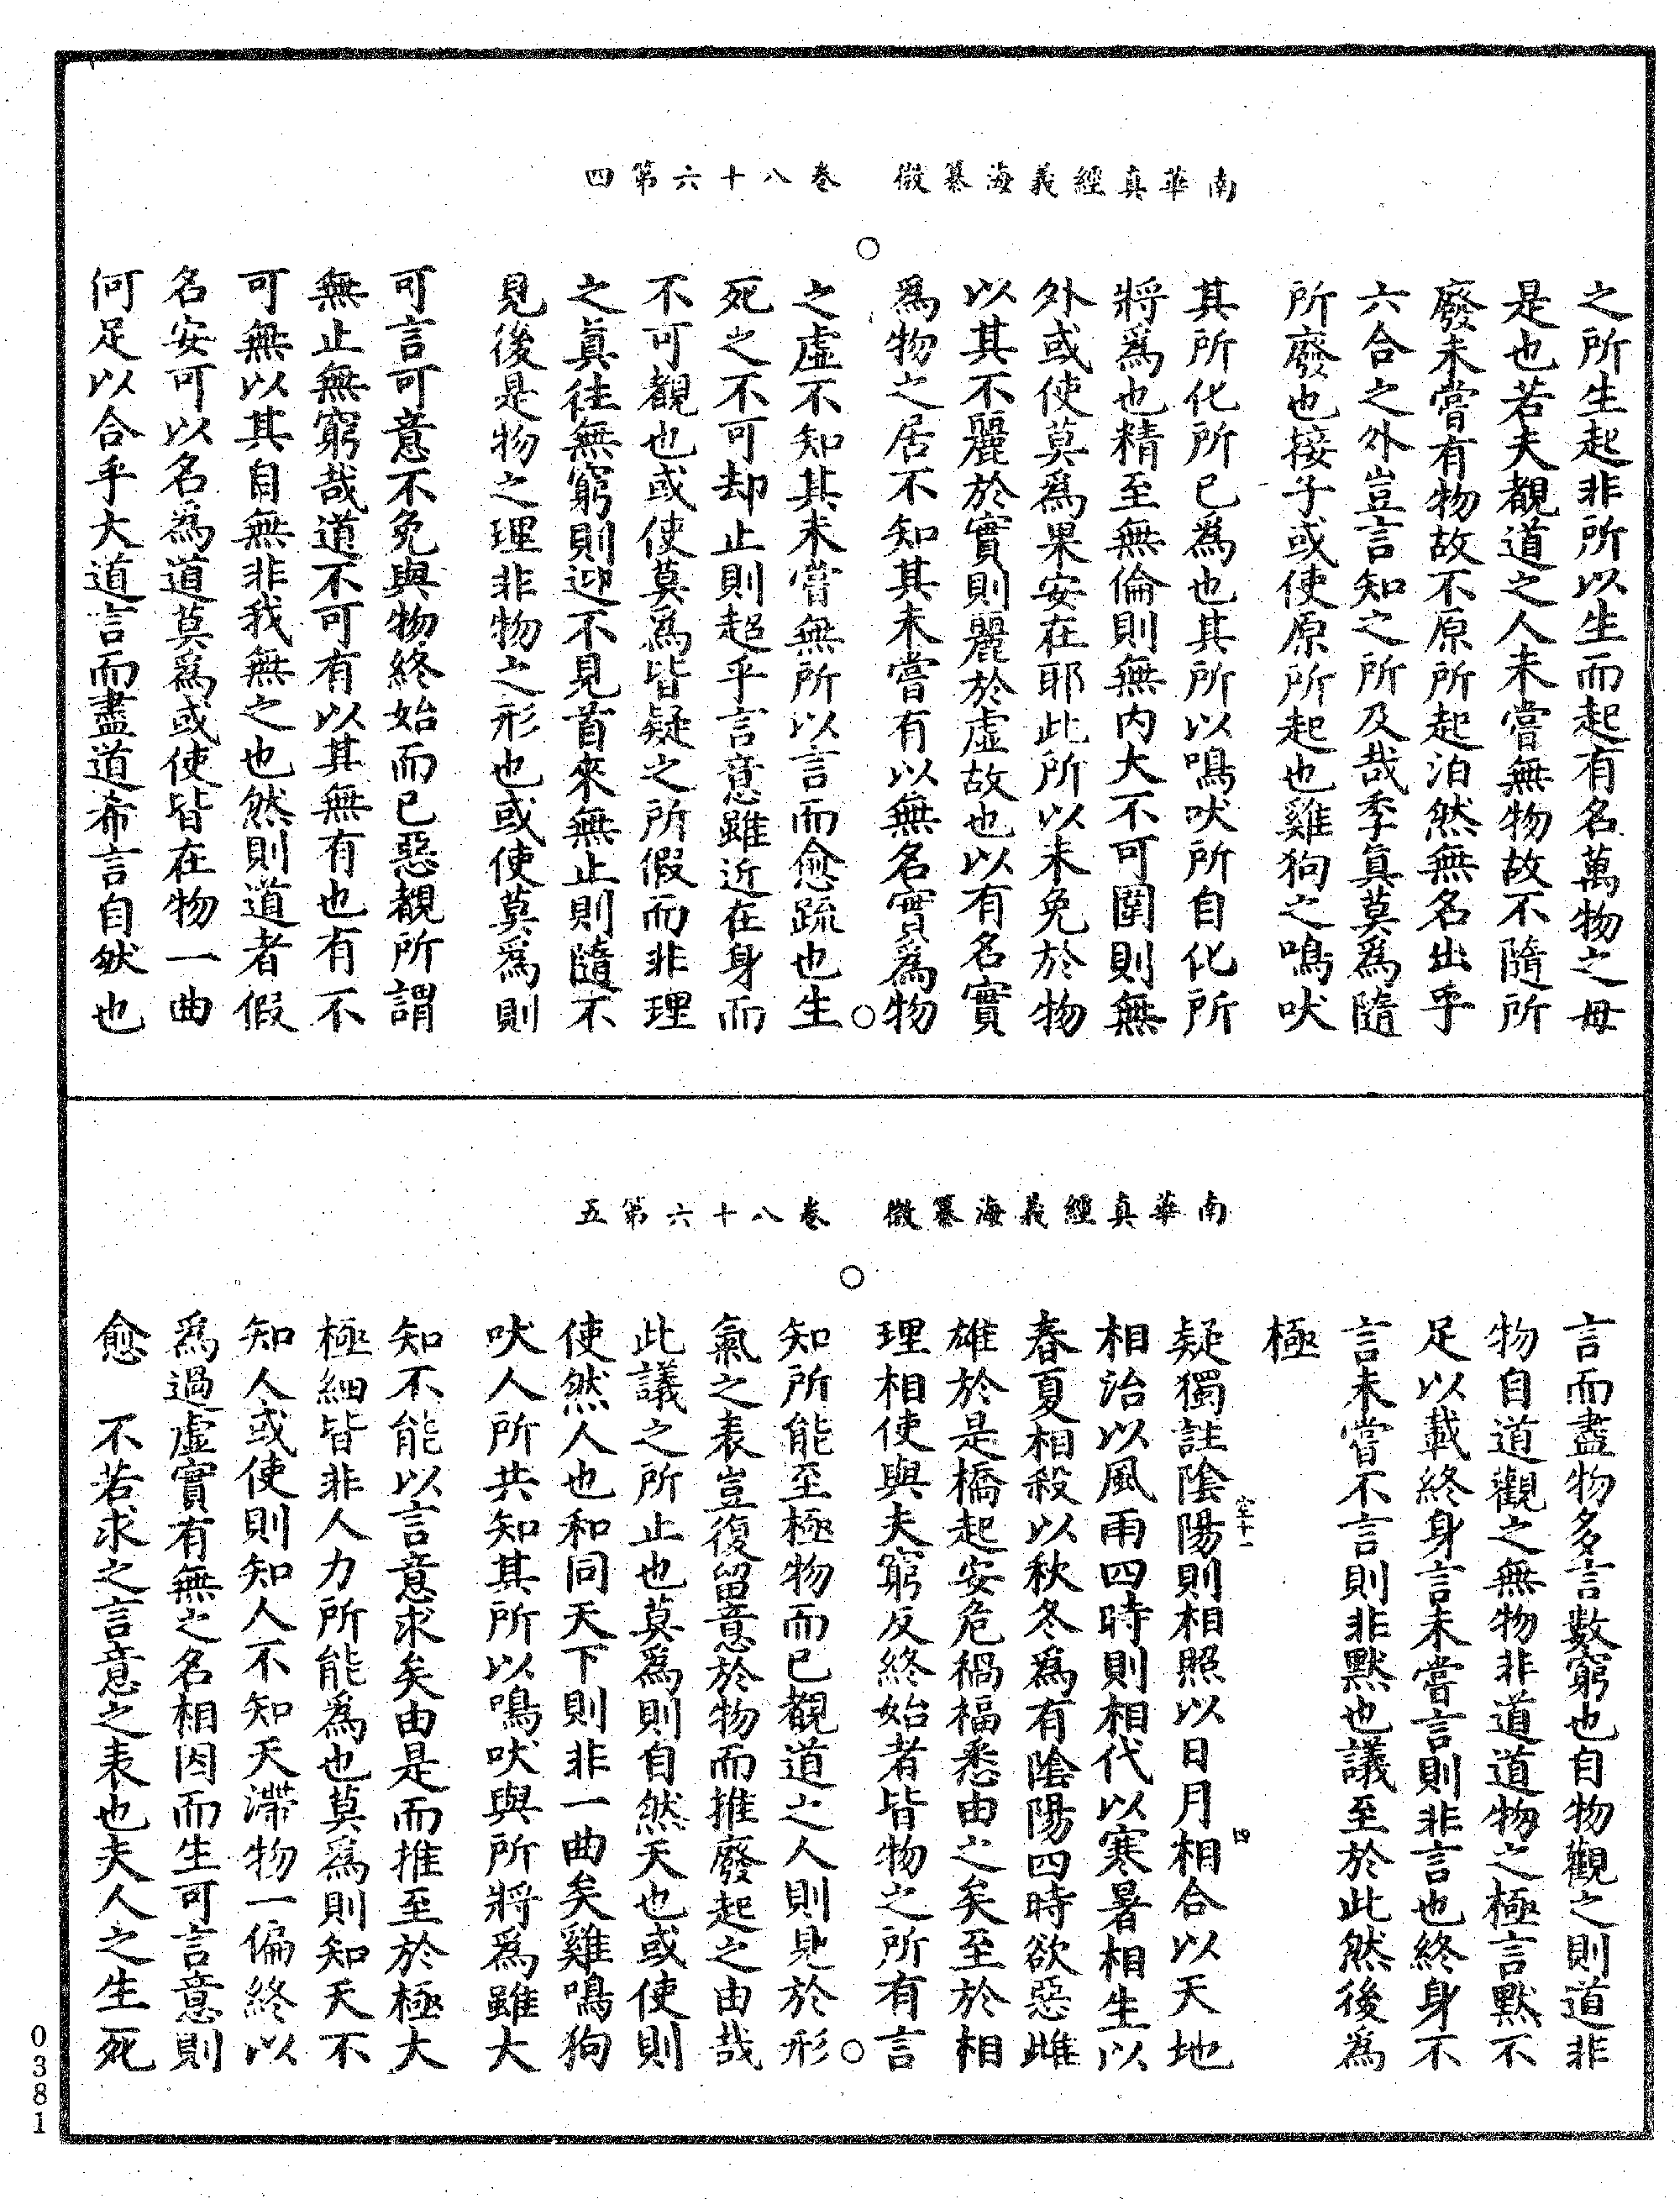 南華真經義海纂微　卷八十六第四
之所生起非所以生而起有名萬物之母
是也若夫覩道之人未嘗無物故不隨所
廢未嘗有物故不原所起泊然無名出乎
六合之外豈言知之所及哉季真莫爲隨
所廢也接子或使原所起也雞狗之鳴吠
其所化所已爲也其所以鳴吠所自化所
將爲也精至無倫則無内大不可圍則無
外或使莫爲果安在耶此所以未免於物
以其不麗於實則麗於虛故也以有名實
爲物之居不知其未嘗有以無名實爲物
之虛不知其未嘗無所以言而愈疏也生
死之不可却止則超乎言意雖近在身而
不可覩也或使莫爲皆疑之所假而非理
之真往無窮則迎不見首來無止則隨不
見後是物之理非物之形也或使莫爲則
可言可意不免與物終始而已惡覩所謂
無止無窮哉道不可有以其無有也有不
可無以其自無非我無之也然則道者假
名安可以名爲道莫爲或使皆在物一曲
何足以合乎大道言而盡道希言自然也
南華真經義海纂微　卷八十六第五
言而盡物多言數窮也自物觀之則道非
物自道觀之無物非道道物之極言默不
足以載終身言未嘗言則非言也終身不
言未嘗不言則非默也議至於此然後為
極
疑獨註陰陽則相照以日月相合以天地
相治以風雨四時則相代以寒暑相生以
春夏相殺以秋冬爲有陰陽四時欲惡雌
雄於是橋起安危禍福悉由之矣至於相
理相使與夫窮反終始者皆物之所有言
知所能至極物而已覩道之人則見於形
氣之表豈復留意於物而推廢起之由哉
此議之所止也莫爲則自然天也或使則
使然人也和同天下則非一曲矣雞鳴狗
吠人所共知其所以鳴吠與所將爲雖大
知不能以言意求矣由是而推至於極大
極細皆非人力所能爲也莫爲則知天不
知人或使則知人不知天滯物一偏終以
爲過虛實有無之名相因而生可言意則
愈　不若求之言意之表也夫人之生死
空十一
四
0381